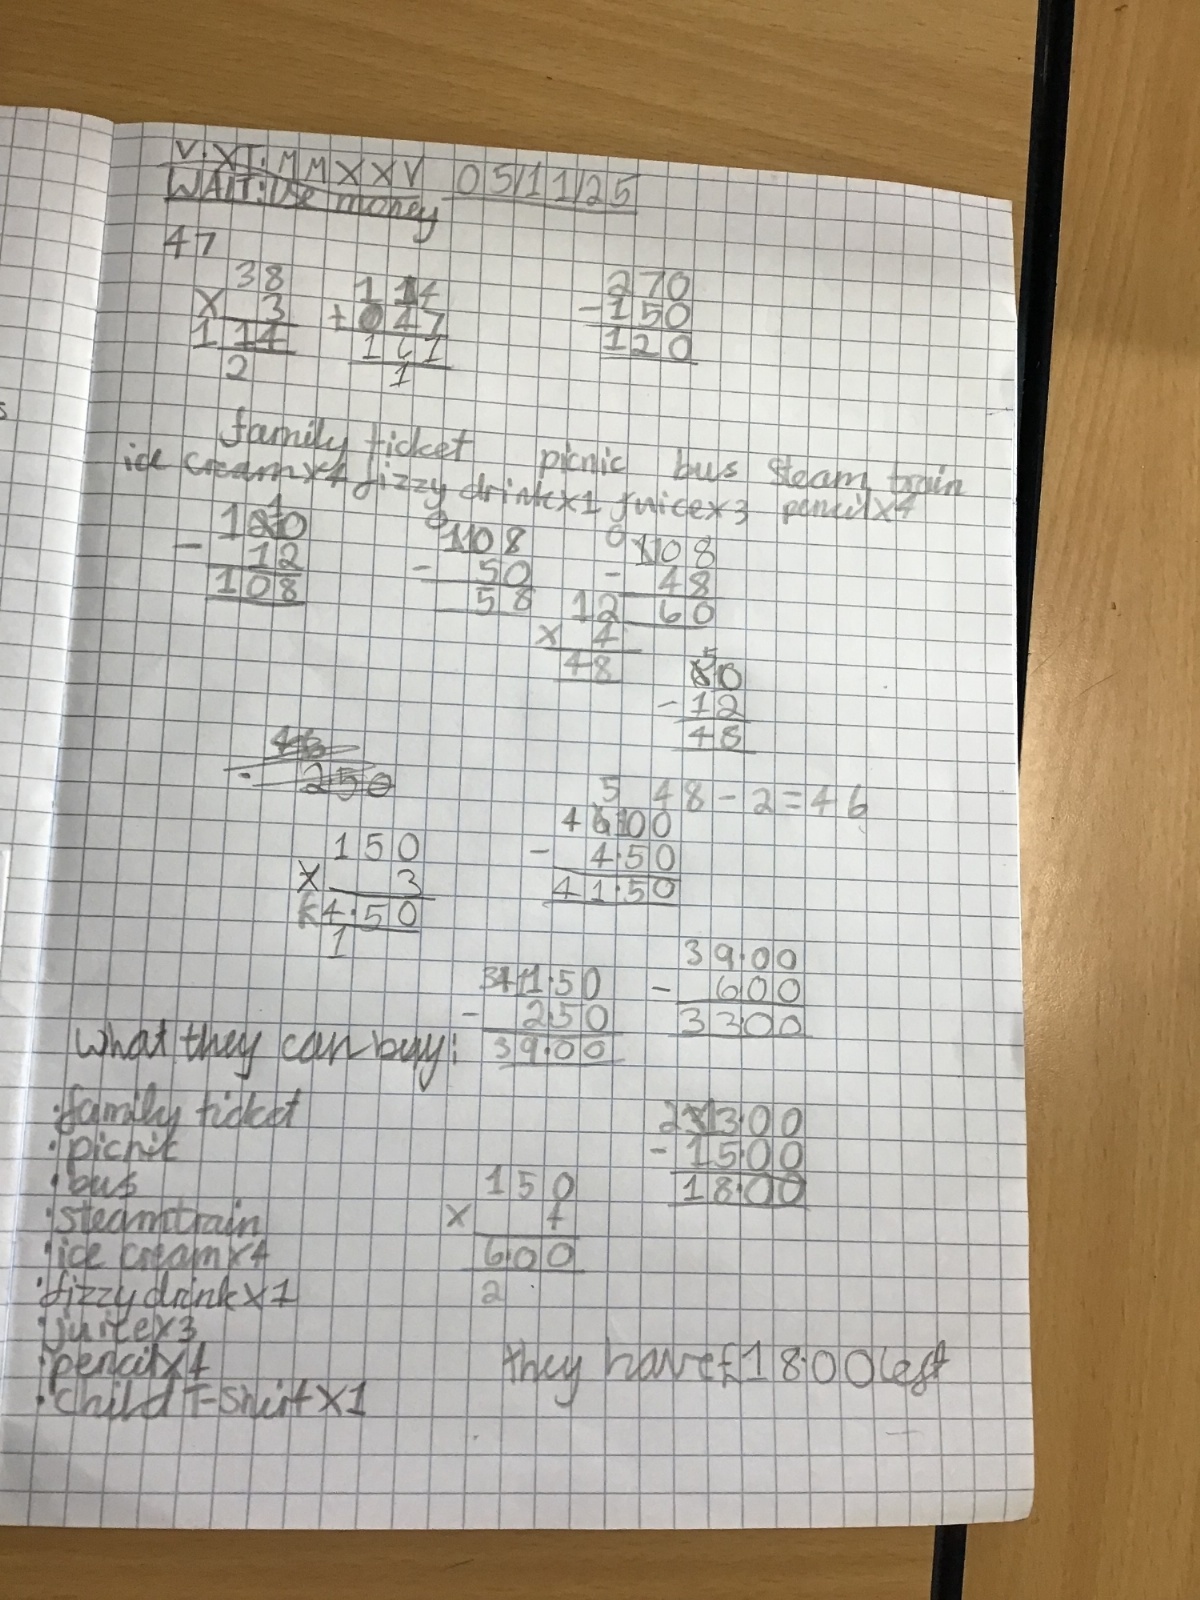 V.XI.MMXXV 05/11/25
WALT: Use money
47
38
x 3
114
2
114
+ 047
161
1
270
- 150
120
family ticket picnic bus steam train
ice creamx4 fizzy drinkx1 juicex3 pencilx4
120
- 12
108
0 108
- 50
58
0 108
- 48
60
12
x 4
48
5
60
- 12
48
48 - 2 = 46
250
5
46.00
- 4.50
41.50
150
x 3
£4.50
1
341.50
- 2.50
39.00
39.00
- 600
3300
What they can buy:
•family ticket
•picnic
•bus
•steamtrain
•ice creamx4
•fizzy drinkx1
•juicex3
•pencilx4
•child T-ShirtX1
150
x 4
6.00
2
33.00
- 15.00
18.00
they have £18.00left